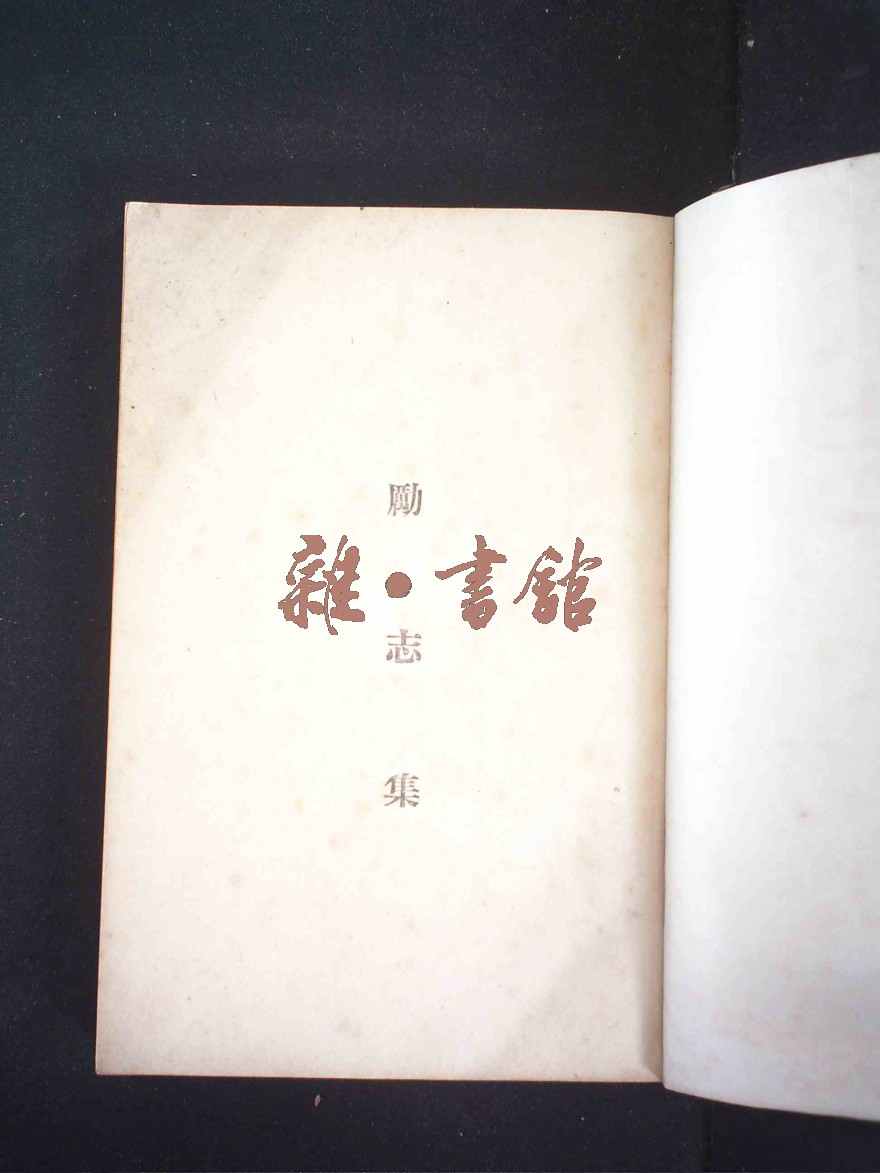 勵志集
雜·書館